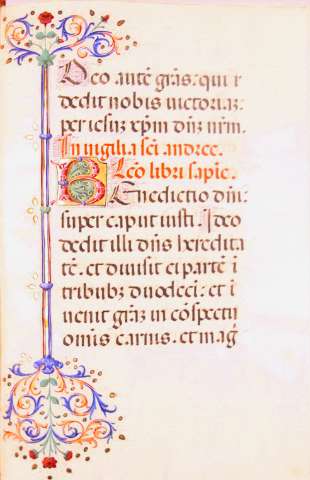 Deo autē gr̄as: qui
dedit nobis uictoriaz:
per iesuz xp̄m dn̄z nr̄m.
In uigilia sc̄i andree.
Leo libri sapie.
Benedictio dn̄i
super caput iusti. Ideo
dedit illi dn̄s heredita
tē. et diuisit ei partē ī
tribubꝫ duodecī: et ī
uenit gr̄az in cōspectu
omis carnis. et mag